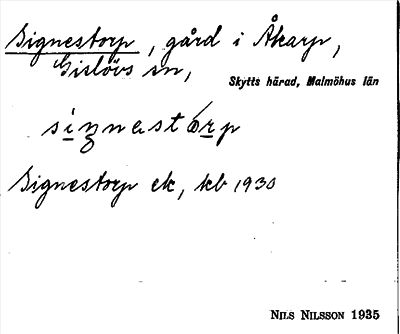 Signestorp, gård i Åkarp,
Gislövs sn,
Skytts härad, Malmöhus län
siŋnastórp
Signestorp ek, kb 1930
NILS NILSSON 1935